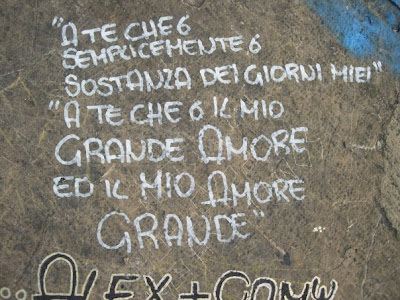 "A TE CHE 6
SEMPLICEMENTE 6
SOSTANZA DEI GIORNI MIEI"
"A TE CHE 6 IL MIO
GRANDE AMORE
ED IL MIO AMORE
GRANDE"
ALEX +